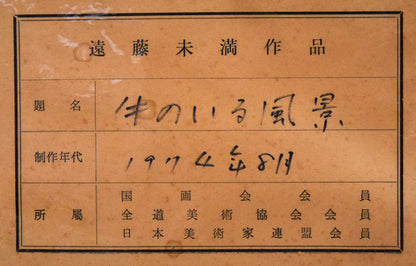 遠藤未満作品
題名 牛のいる風景
制作年代 1974年8月
所屬 国画会会員
全道美術協会会員
日本美術家連盟会員